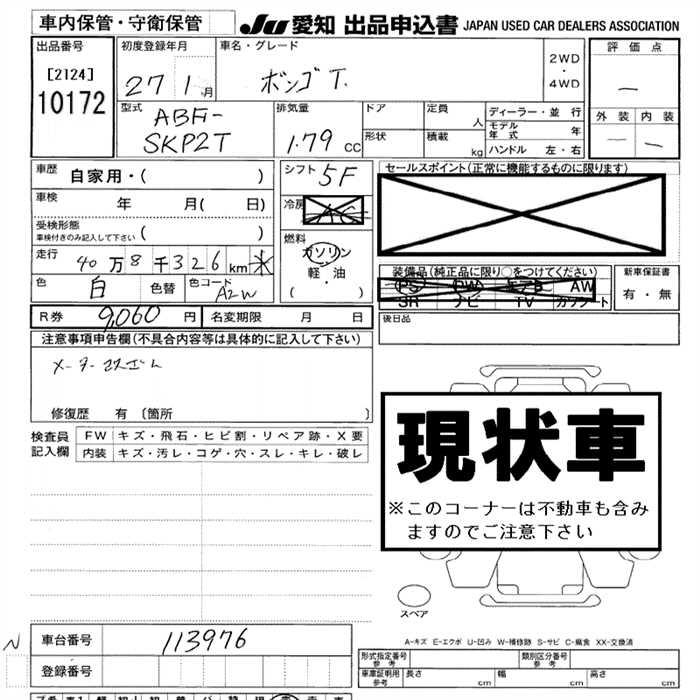 車内保管・守衛保管 JU 愛知 出品申込書 JAPAN USED CAR DEALERS ASSOCIATION
出品番号 初度登録年月 車名・グレード 評価点
[2124] 27 1月 ボンゴT. 2WD・4WD －
10172 型式 排気量 ドア 定員 人 ディーラー・並行 外装 内装
ABF- モデル年式 年
SKP2T 1.79 cc 形状 積載 kg ハンドル 左・右 － －
車歴 自家用・( ) シフト 5F セールスポイント(正常に機能するものに限ります)
車検 年 月( 日) 冷房 AC
受検形態 ( )
車検付きのみ記入して下さい 燃料
走行 40万8千326km ガソリン 装備品(純正品に限り○をつけてください) 新車保証書
色 白 色替 色コード A2W 軽・油 PS PW エアB AW 有・無
( ) SR ナビ TV カワシート
R券 9,060円 名変期限 月 日 後日品
注意事項申告欄(不具合内容等は具体的に記入して下さい)
修復歴 有 〔箇所 〕
現状車
※このコーナーは不動車も含み
ますのでご注意下さい
検査員 FW キズ・飛石・ヒビ割・リペア跡・X要
記入欄 内装 キズ・汚レ・コゲ・穴・スレ・キレ・破レ
スペア
A-キズ E-エクボ U-凹み W-補修跡 S-サビ C-腐食 XX-交換済
N 車台番号 113976
形式指定番号 参考 類別区分番号 参考
登録番号 車庫証明用 参考 長さ cm 幅 cm 高さ cm